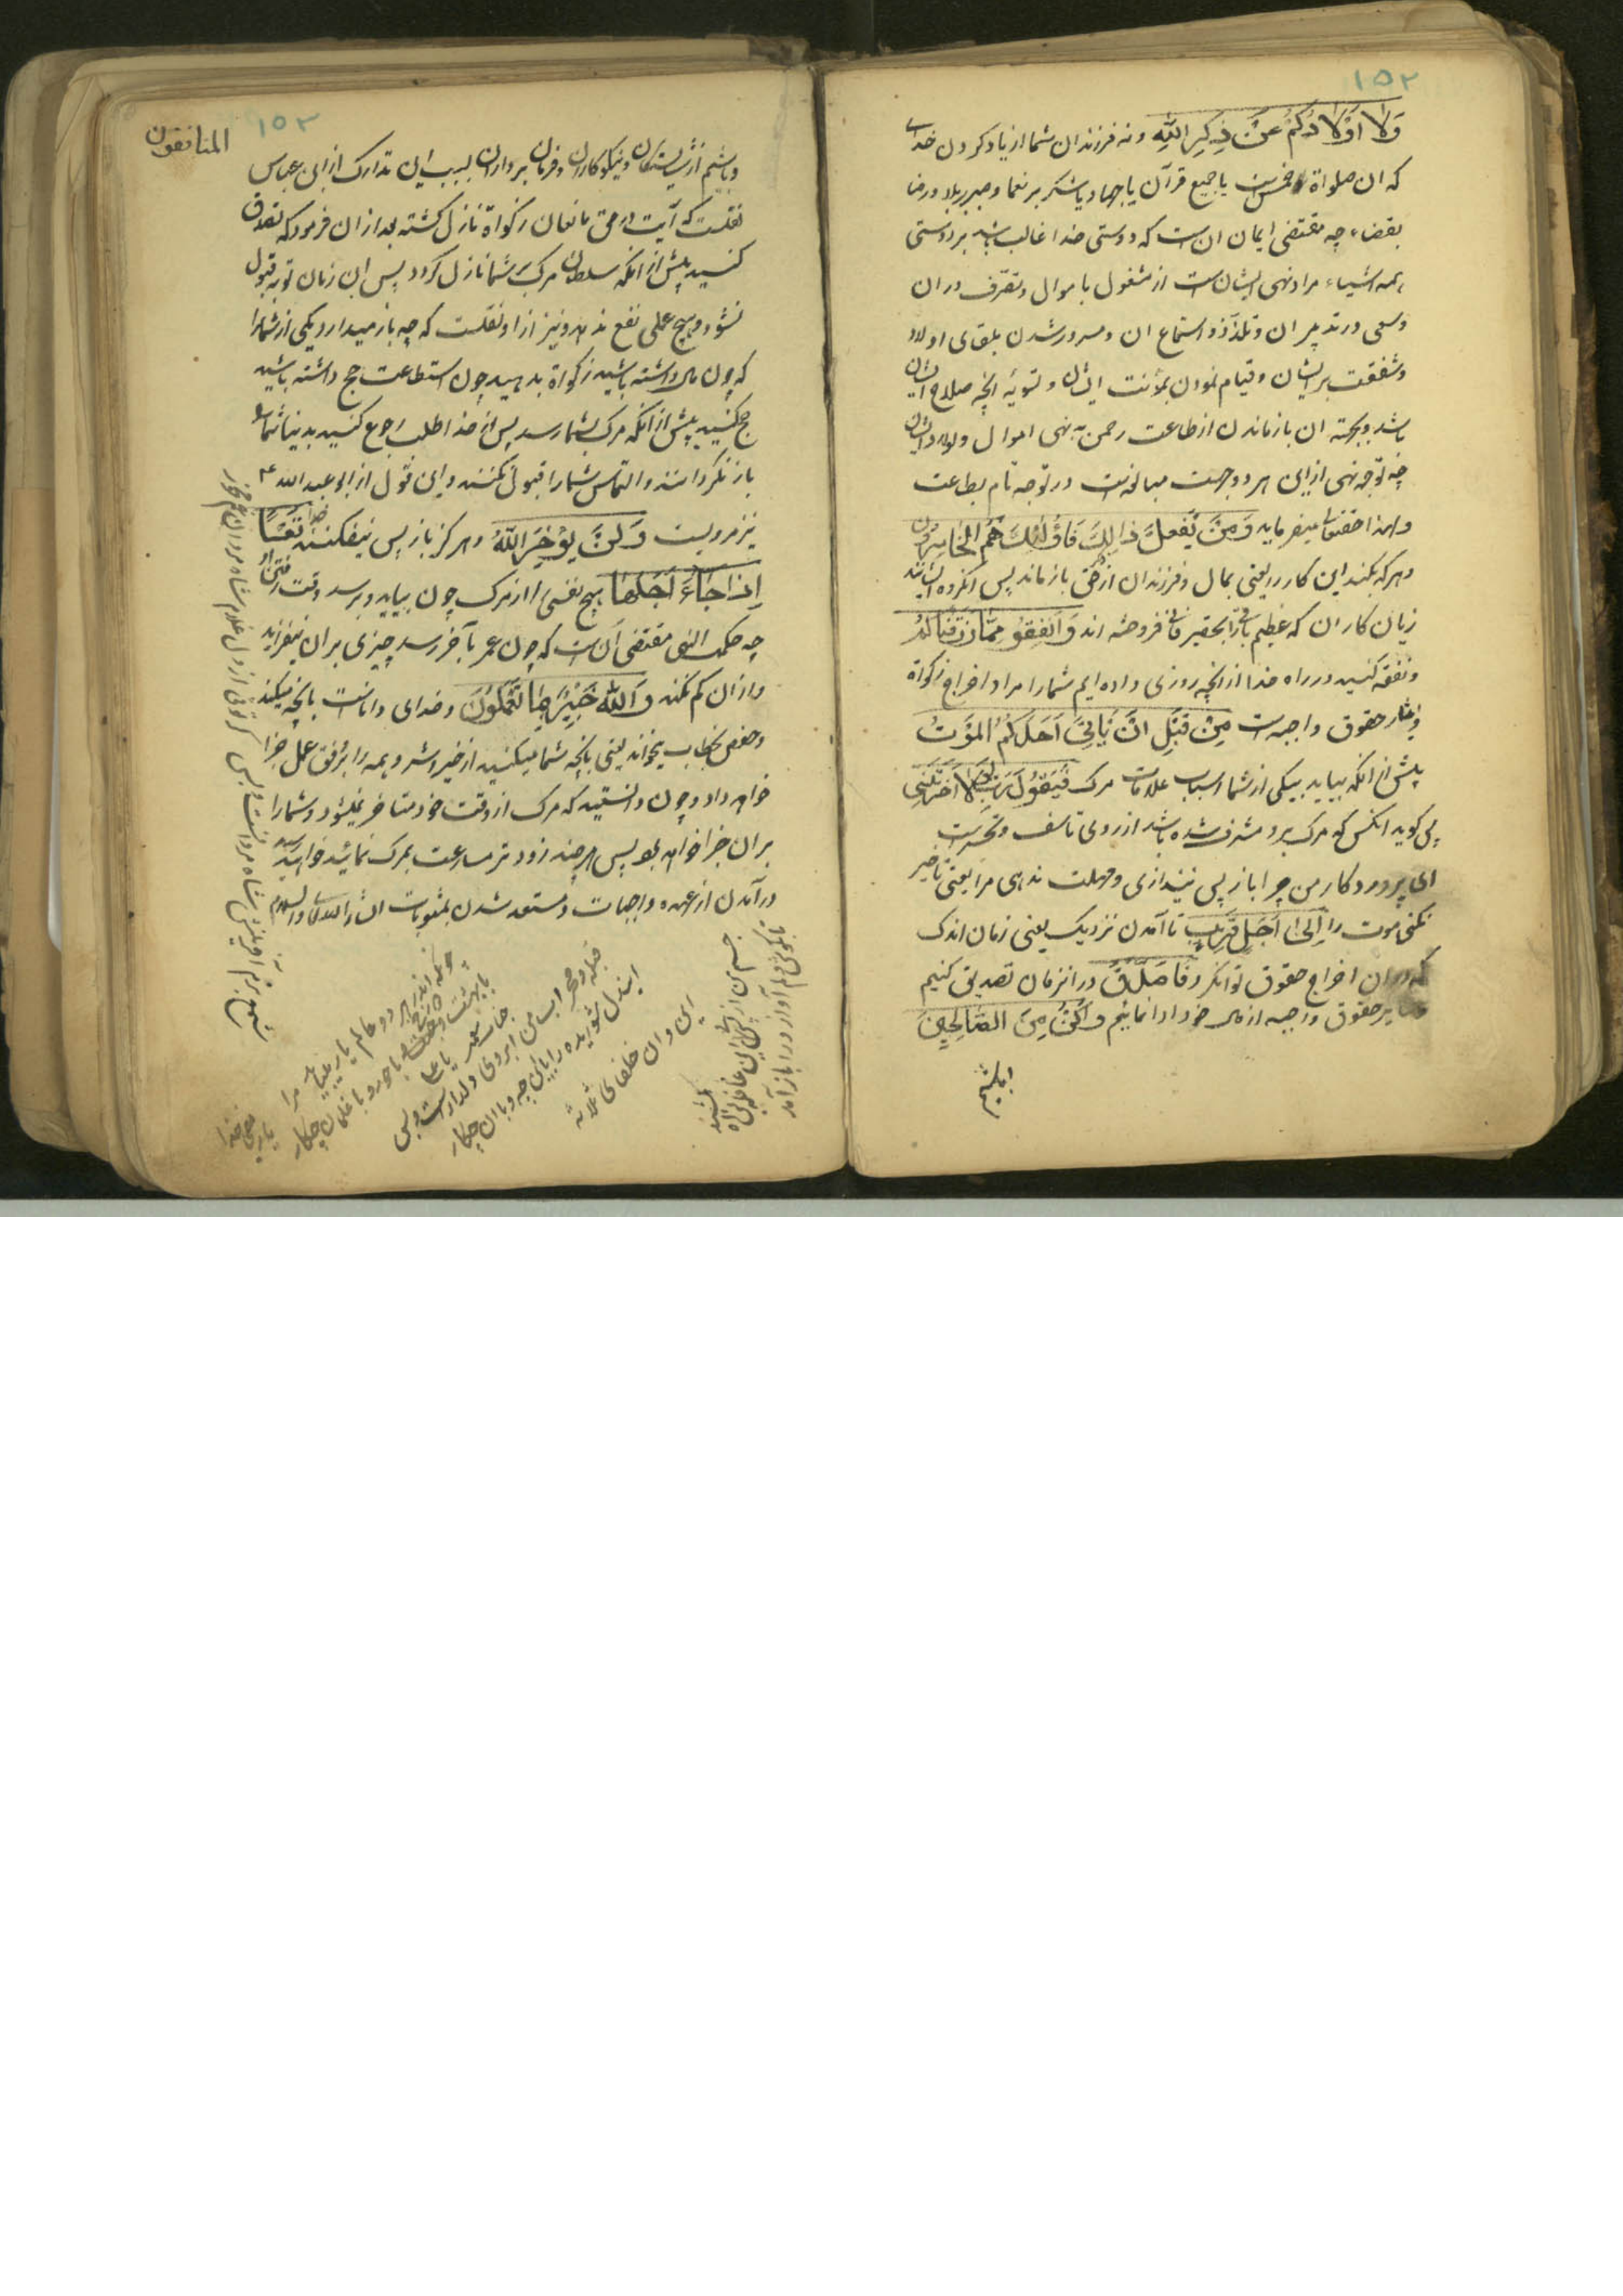 ۱۵۲
وَلَا اَوْلَادُكُمْ عَنْ ذِكْرِ اللّٰهِ ونه فرزندان شما از یاد کردن خدای
که ان صلواة خمس است یا جمیع قرآن یا جهاد یا شکر بر نعما و صبر بر بلا و رضا
بقضاء چه مقتضی ایمان ان است که دوستی خدا غالب باشد بر دوستی
همه اشیاء مراد نهی ایشان است از مشغول باموال و تصرف در ان
وسعی در تدبیر ان و تلذذ و استماع ان ومسرور شدن بلقای اولاد
وشفقت بر ایشان و قیام نمودن بمؤنت ایشان و تسویه انچه صلاح ایشان
باشد و بجهته ان بازماندن از طاعت رحمن به نهی اموال و اولاد ایشان
چه توجه نهی از این هر دو جهت مبالغه است در توجه تام بطاعت
ولهذا حقتعالی میفرماید وَمَنْ يَفْعَلْ ذٰلِكَ فَاُولٰئِكَ هُمُ الْخَاسِرُونَ
وهر که بکند این کار را یعنی بمال و فرزندان از حق بازماند پس انکروه ایشانند
زیان کاران که عظیم باقی را بحقیر فانی فروخته اند وَاَنْفِقُوا مِمَّا رَزَقْنَاكُمْ
ونفقه کنید در راه خدا از انچه روزی داده ایم شما را مراد اخراج زکواة
وسایر حقوق واجبه است مِنْ قَبْلِ اَنْ يَأْتِيَ اَحَدَكُمُ الْمَوْتُ
پیش از انکه بیاید بیکی از شما اسباب علامات مرک فَيَقُولَ رَبِّ لَوْلَا اَخَّرْتَنِي
پس کوید انکس که مرک برو مشرف شده باشد از روی تاسف و تحسر
ای پروردکار من چرا باز پس نیندازی و مهلت ندهی مرا یعنی تاخیر
نکنی موت را اِلٰى اَجَلٍ قَرِيبٍ تا آمدن نزدیک یعنی زمان اندک
که در ان اخراج حقوق توانکرد فَاَصَّدَّقَ در انزمان تصدیق کنیم
وسایر حقوق واجبه از مال خود ادا نمائیم وَاَكُنْ مِنَ الصَّالِحِينَ
و باشیم
المنافقون ۱۵۳
وباشیم از شایستکان و نیکوکاران و فرمان برداران بسبب این تدارک از ابن عباس
نقلست که آیت در حق مانعان زکواة نازل کشته بعد از ان فرمود که تصدق
کنید پیش از انکه سلطان مرک بر شما نازل کردد پس ان زمان توبه قبول
نشود و هیچ عملی نفع ندهد و نیز از او نقلست که چه باز میدارد یکی از شما را
که چون مال داشته باشید زکواة بدهید چون استطاعت حج داشته باشید
حج کنید پیش از انکه مرک بشما رسد پس از خدا طلب رجوع کنید بدنیا شما را
باز نکردانند و التماس شما را قبول نکنند و این قول از ابو عبدالله ع
نیز مرویست وَلَنْ يُؤَخِّرَ اللّٰهُ وهرکز باز پس نیفکند خدا نَفْسًا
اِذَا جَاءَ اَجَلُهَا هیچ نفسی را از مرک چون بیاید و برسد وقت رفتن او
چه حکمت الهی مقتضی آن است که چون عمر بآخر رسد چیزی بران نیفزاید
واز ان کم نکند وَاللّٰهُ خَبِيرٌ بِمَا تَعْمَلُونَ وخدای داناست بانچه میکنید
وحفص بخطاب میخواند یعنی بانچه شما میکنید از خیر و شر و همه را بر وفق عمل جزا
خواهد داد و چون دانستید که مرک از وقت خود متاخر نمیشود و شما را
بران جزا خواهد بود پس هر چند زودتر مسارعت بمرک نمائید
در آمدن از عهده واجبات و مستعد شدن بمثوبات انشاء الله تعالی والسلام
جسم من از
این و ان خلفای ثلاثه
قبله و محراب من ابروی دلدار است و بس
این دل شوریده را با این چه و با ان چکار
چونکه اندر هر دو عالم یار میباید مرا
با بهشت و دوزخ و با حور و با غلمان چکار